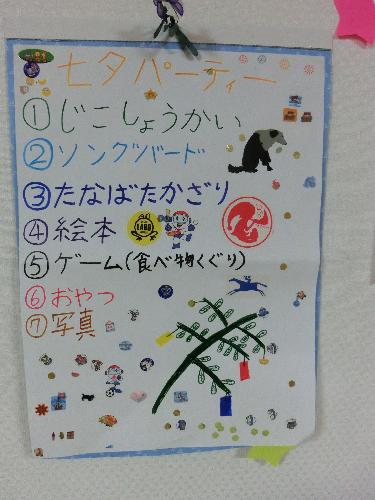 七夕パーティー
① じこしょうかい
② ソングツバード
③ たなばたかざり
④ 絵本
⑤ ゲーム(食べ物くぐり)
⑥ おやつ
⑦ 写真